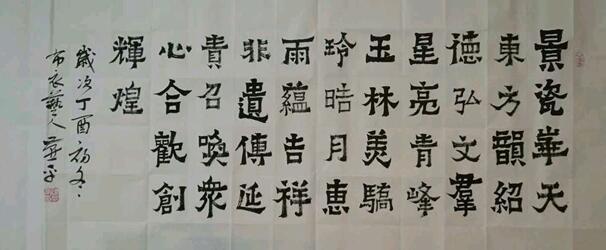 景瓷華天
東方韻紹
德弘文羣
星亮青峰
玉林美驕
玲晧月惠
雨蘊吉祥
非遺傳延
貴召喚衆
心合歡創
輝煌
歲次丁酉初冬
布衣藝人